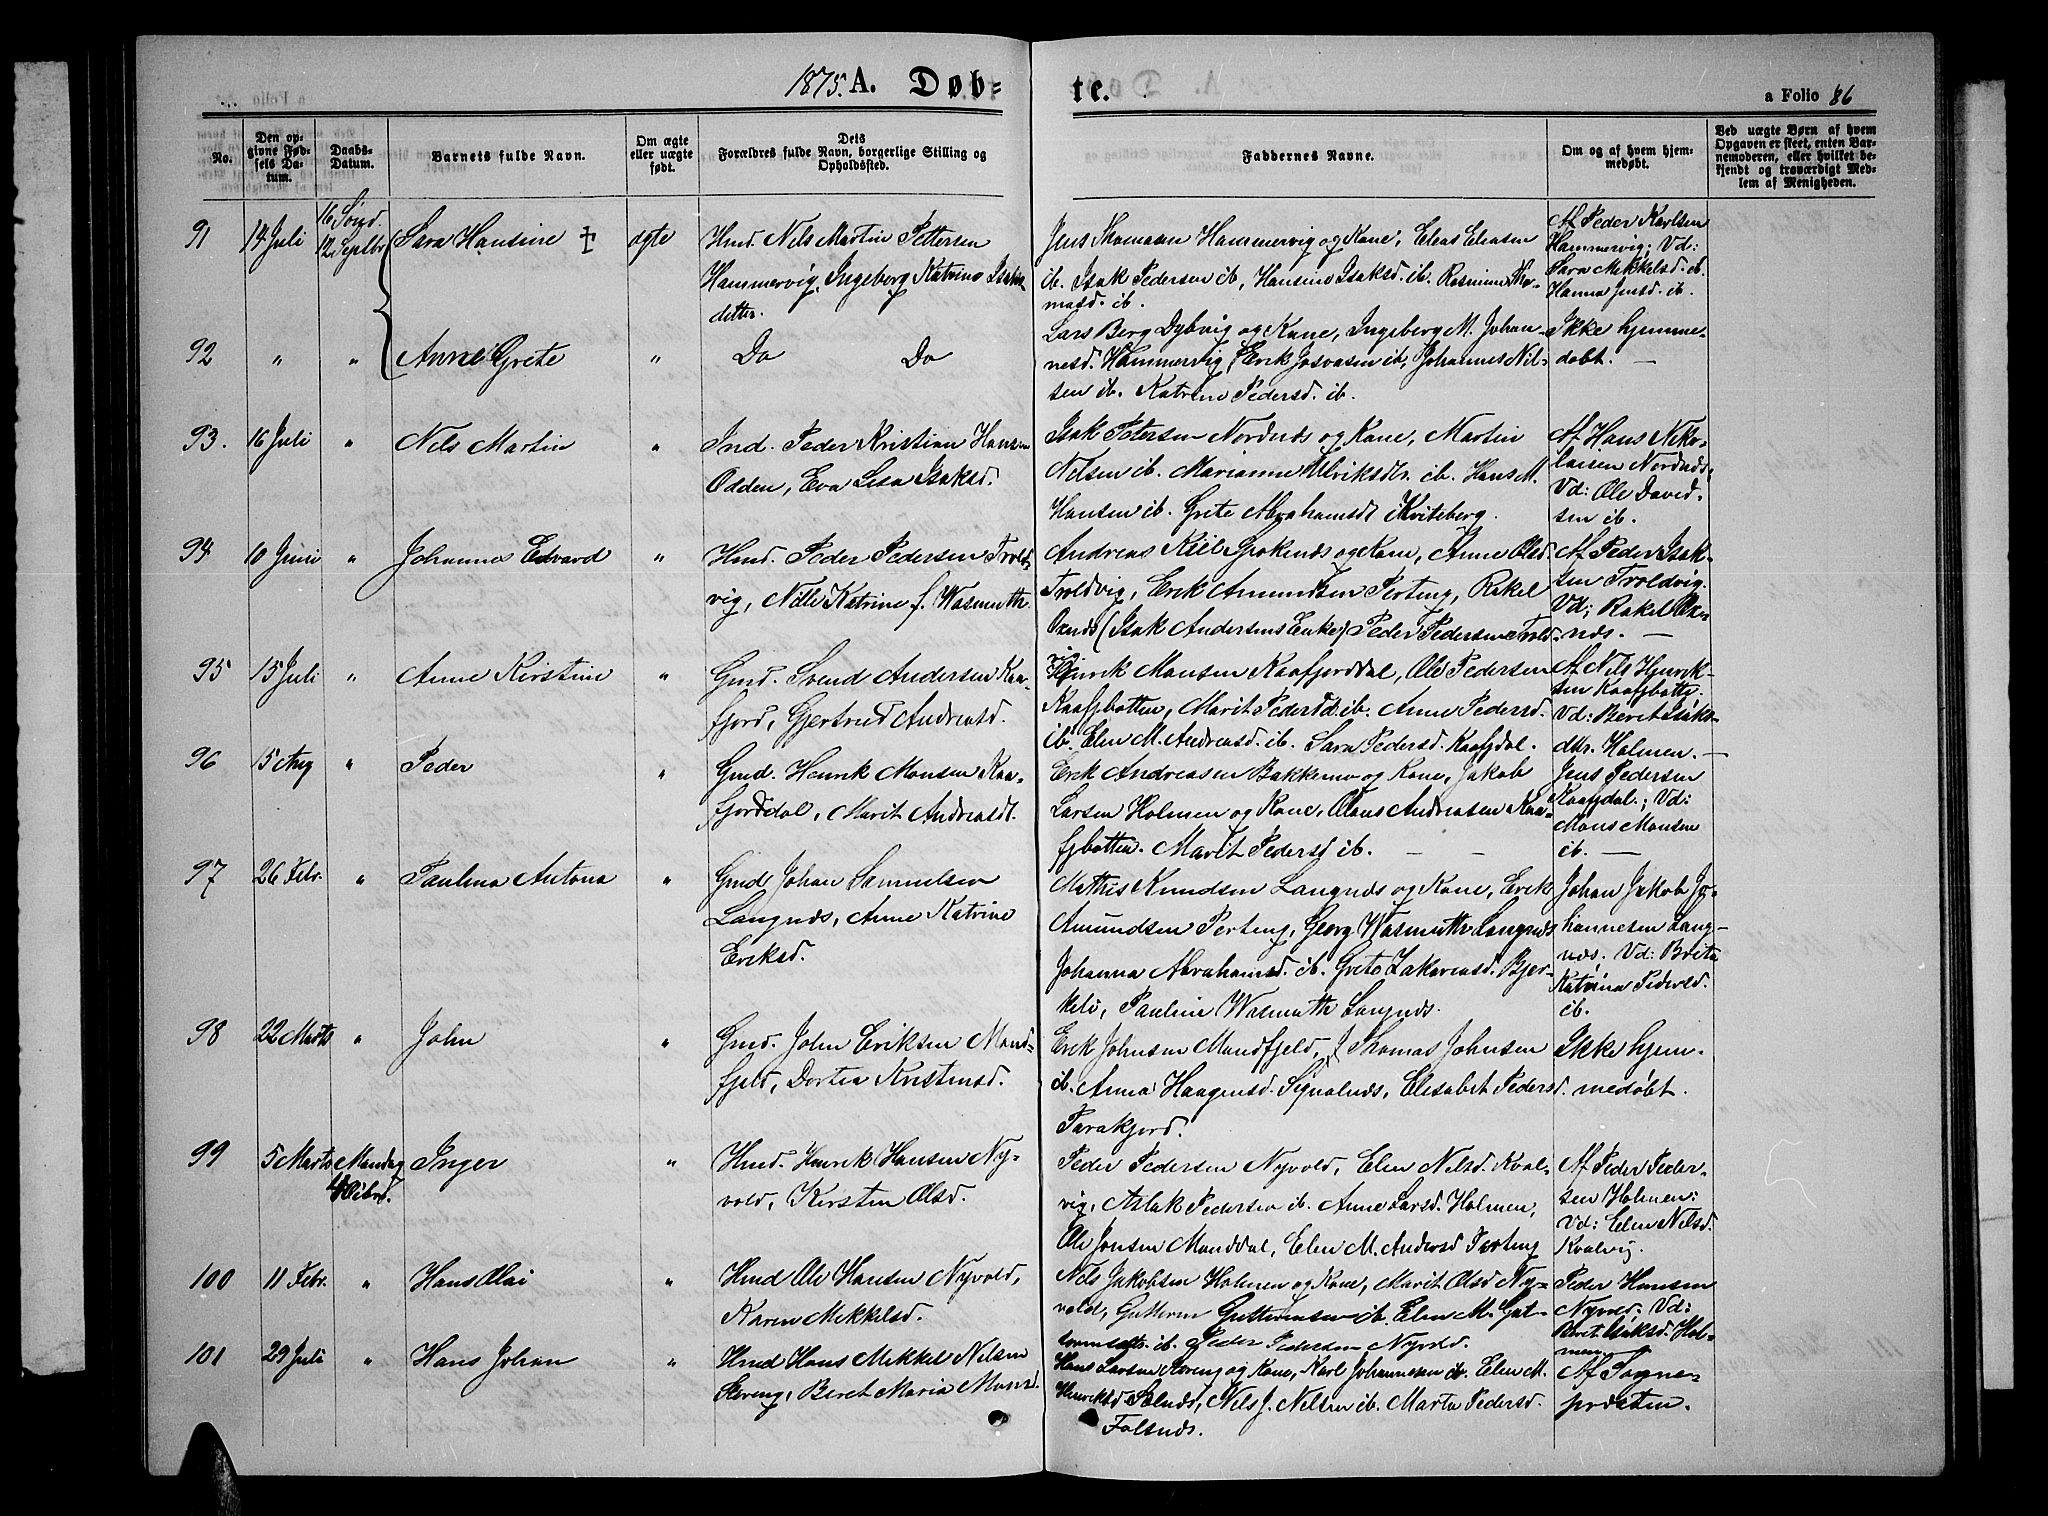 1875. A. Døb=
te.
a Folio 86
No.
Den op=
givne Fød=
sels Da=
tum.
Daabs=
Datum.
Barnets fulde Navn.
Om ægte
eller uægte
født.
Dets
Forældres fulde Navn, borgerlige Stilling og
Opholdssted.
Faddernes Navne.
Om og af hvem hjem=
medøbt.
Ved uægte Børn af hvem
Opgaven er skeet, enten Bar=
nemoderen, eller hvilket be=
kjendt og troværdigt Med=
lem af Menigheden.
91
14 Juli
16 Sønd.
12 Septbr
Sara Hansine †
ægte
Hmd. Nils Martin Pettersen
Hammervig, Ingeborg Katrine Isaks
detter.
Jens Thomassen Hammervig og Kone, Elias Eliasen
ib. Isak Pedersen ib, Hansine Isaksd. ib.
masd. ib.
Af Peder Karlsen
Hammervig; Vd:
Sara Mikkelsd. ib.
Hanna Jensd. ib.
92
"
"
Anne Grete
"
Do Do
Lars Berg Dybvig og Kone, Ingeberg M. Johan-
nesd. Hammervig, Erik Josvasen ib, Johannes Nil-
sen ib. Katrine Pedersd. ib.
Ikke hjemme-
døbt. —
93.
16 Juli
"
Nils Martin
"
Ind. Peder Kristian Hansen
Odden, Eva Lisa Isaksd.
Isak Petersen Nordnæs og Kone, Martin
Nilsen ib. Marianne Ulriksdtr. ib. Hans M.
Hansen ib. Grete Abrahamsdt Kviteberg.
Af Hans Niko-
laisen Nordnæs;
Vd: Ole David-
sen ib.
94
10 Juni
"
Johannes Edvard
"
Hmd. Peder Pedersen Trold-
vig, Nille Katrine f. Wasmuth
Andreas Kiil Spokenæs og Kone, Anne Olsd.
Troldvig, Erik Amundsen Perteng, Rakel
Oxnæs (Isak Andersens Enke) Peder Pedersen Trold-
vig
Af Peder Isak-
sen Troldvig.
Vd; Rakel Ox-
næs. —
95
15 Juli
"
Anne Kirstine
"
Gmd. Svend Andersen Kaa-
fjord, Gjertrud Andreasd.
Henrik Monsen Kaafjorddal, Ole Pedersen
Kaafjbotten, Marit Pedersd. ib. Anne Pedersd.
ib. Elen M. Andreasd. ib. Sara Pedersd. Kaafjdal.
Af Nils Henrik-
sen Kaafjbotte.
Vd: Beret Isaks-
dtr. Holmen. —
96
15 Aug
"
Peder
"
Gmd. Henrik Monsen Kaa-
fjorddal, Marit Andreasdt.
Erik Andreasen Bakkemo og Kone, Jakob
Larsen Holmen og Kone, Olaus Andreasen Kaa-
fjbotten. Marit Pedersd ib. — —
Jens Pedersen
Kaafjdal.; Vd:
Mons Monsen
ib. —
97
26 Febr.
"
Paulina Antona
"
Gmd Johan Samuelsen
Langnæs, Anne Katrine
Eriksd.
Mathis Knudsen Langnæs og Kone, Erik
Amundsen Perteng, Georg Wasmuth Langnæs
Johanna Abrahamsd. ib. Grete Zakariasd. Bjer-
keli, Pauline Wasmuth Langnæs.
Johan Jakob Jo-
hannesen Lang-
næs. Vd: Brita
Katrina Pedersd.
ib.
98
22 Marts
"
John
"
Gmd. John Eriksen Mand-
fjeld, Dortea Kristensd.
Erik Johnsen Mandfjeld, Thomas Johnsen
ib. Anna Haagensd. Signalnæs, Elisabet Pedersd.
Parakjord.
Ikke hjem-
medøbt.
99
5 Marts
Mandag
4 Oibr.
Inger
"
Hmd. Henrik Hansen Ny-
vold, Kirsten Olsd.
Peder Pedersen Nyvold, Elen Nilsd. Kval-
vig, Aslak Pedersen ib. Anne Larsd. Holmen,
Ole Jonsen Manddal, Elen M. Andersd Perteng
Af Peder Peder-
sen Holmen:
Vd: Elen Nilsd.
Kvalvig.
100
11 Febr.
"
Hans Olai
"
Hmd Ole Hansen Nyvold,
Karen Mekkelsd.
Nils Jakobsen Holmen og Kone, Marit Olsd Ny-
vold, Guttorm Guttormsen ib. Elen M. Gut-
tormsdtr. ib. Peder Pedersen Nyvold.
Peder Hansen
Nyvold: Vd:
Beret Isaksd. Hol-
men.
101
29 Juli
"
Hans Johan
"
Hmd Hans Mikkel Nilsen
Storeng, Beret Maria Monsd.
Hans Larsen Storeng og Kone, Karl Johannesen ib. Elen M.
Henriksd Solnæs, Nils J. Nilsen ib. Marta Pedersd.
Falsnæs.
Af Sogne-
præsten.